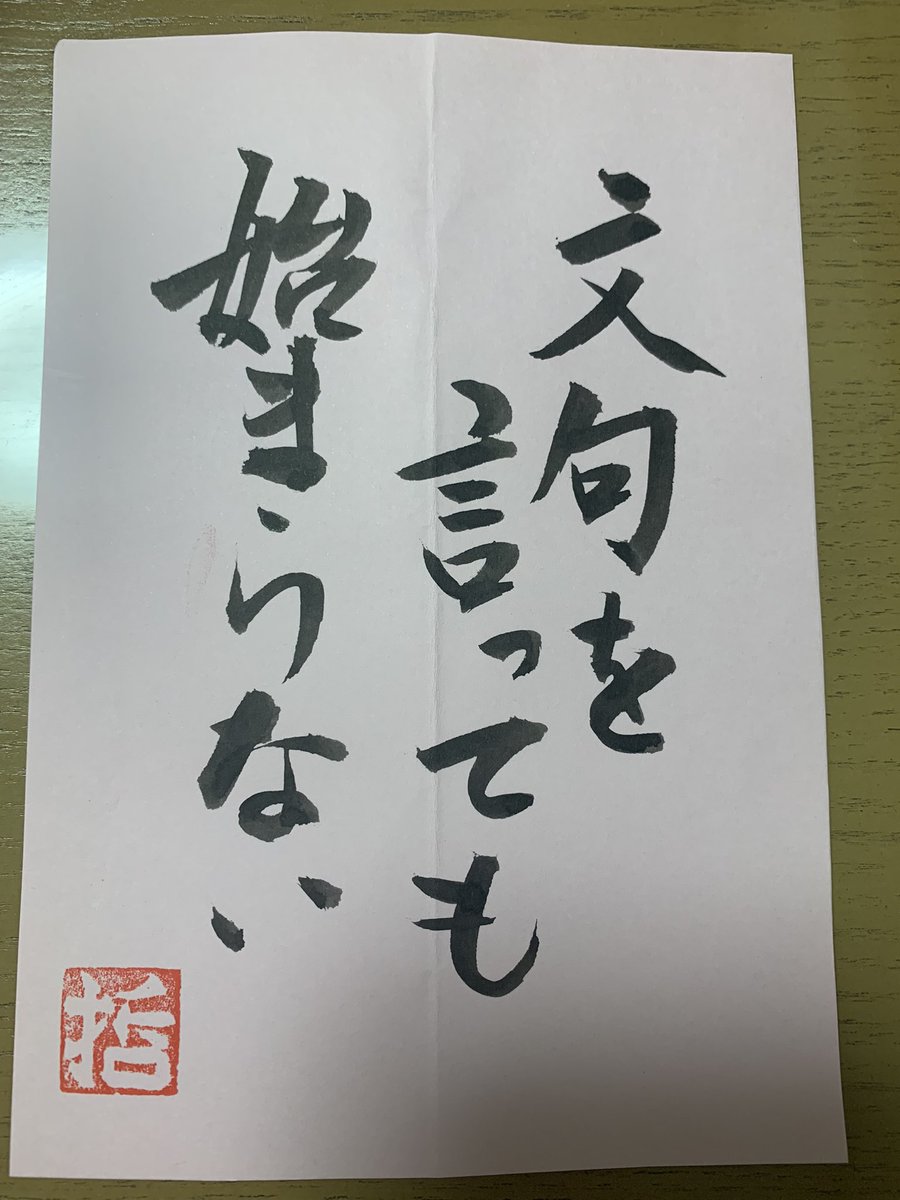 文句を
言っても
始まらない
哲